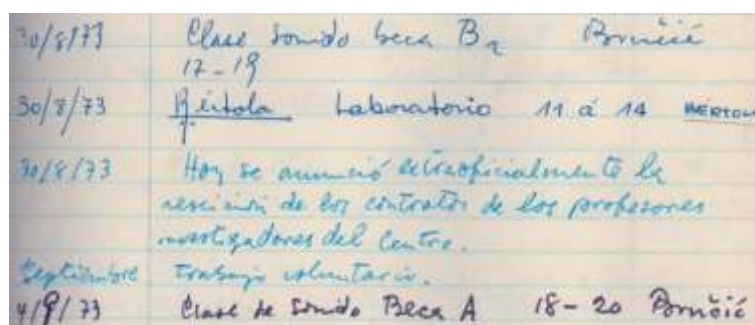 30/8/73 Clase sonido beca B2 Brnčić
17-19
30/8/73 Bértola Laboratorio 11 á 14 BERTOLA
30/8/73 Hoy se anunció extraoficialmente la
rescisión de los contratos de los profesores
investigadores del Centro.
Septiembre trabajo voluntario.
4/9/73 Clase de Sonido Beca A 18-20 Brnčić